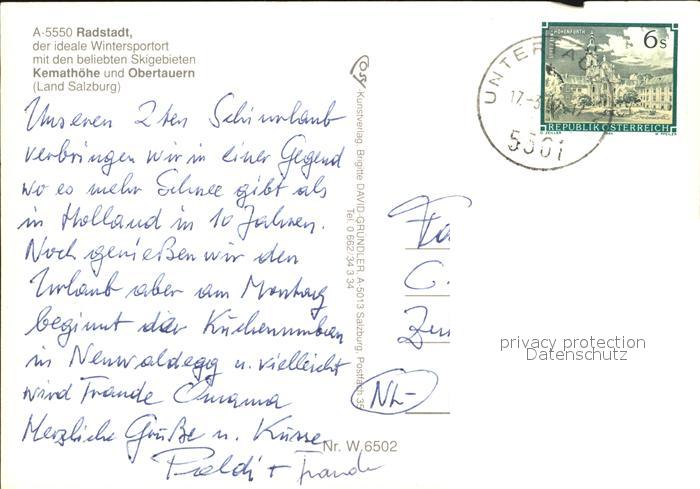 A-5550 Radstadt,
der ideale Wintersportort
mit den beliebten Skigebieten
Kemathöhe und Obertauern
(Land Salzburg)
Unseren 2ten Schiurlaub
verbringen wir in einer Gegend
wo es mehr Schnee gibt als
in Holland in 10 Jahren.
Noch genießen wir den
Urlaub aber am Montag
beginnt der Küchenumbau
in Neuwaldegg u. vielleicht
wird Traude Omama
Herzliche Grüße u. Küsse
Poldi + Traude
Nr. W 6502
Cosy-Kunstverlag, Brigitte DAVID-GRÜNDLER, A-5013 Salzburg, Postfach 35
Tel. 0 662/34 3 34
UNTER
17.-3.
5561
6s
REPUBLIK ÖSTERREICH
Fa
C.
NL-
privacy protection
Datenschutz